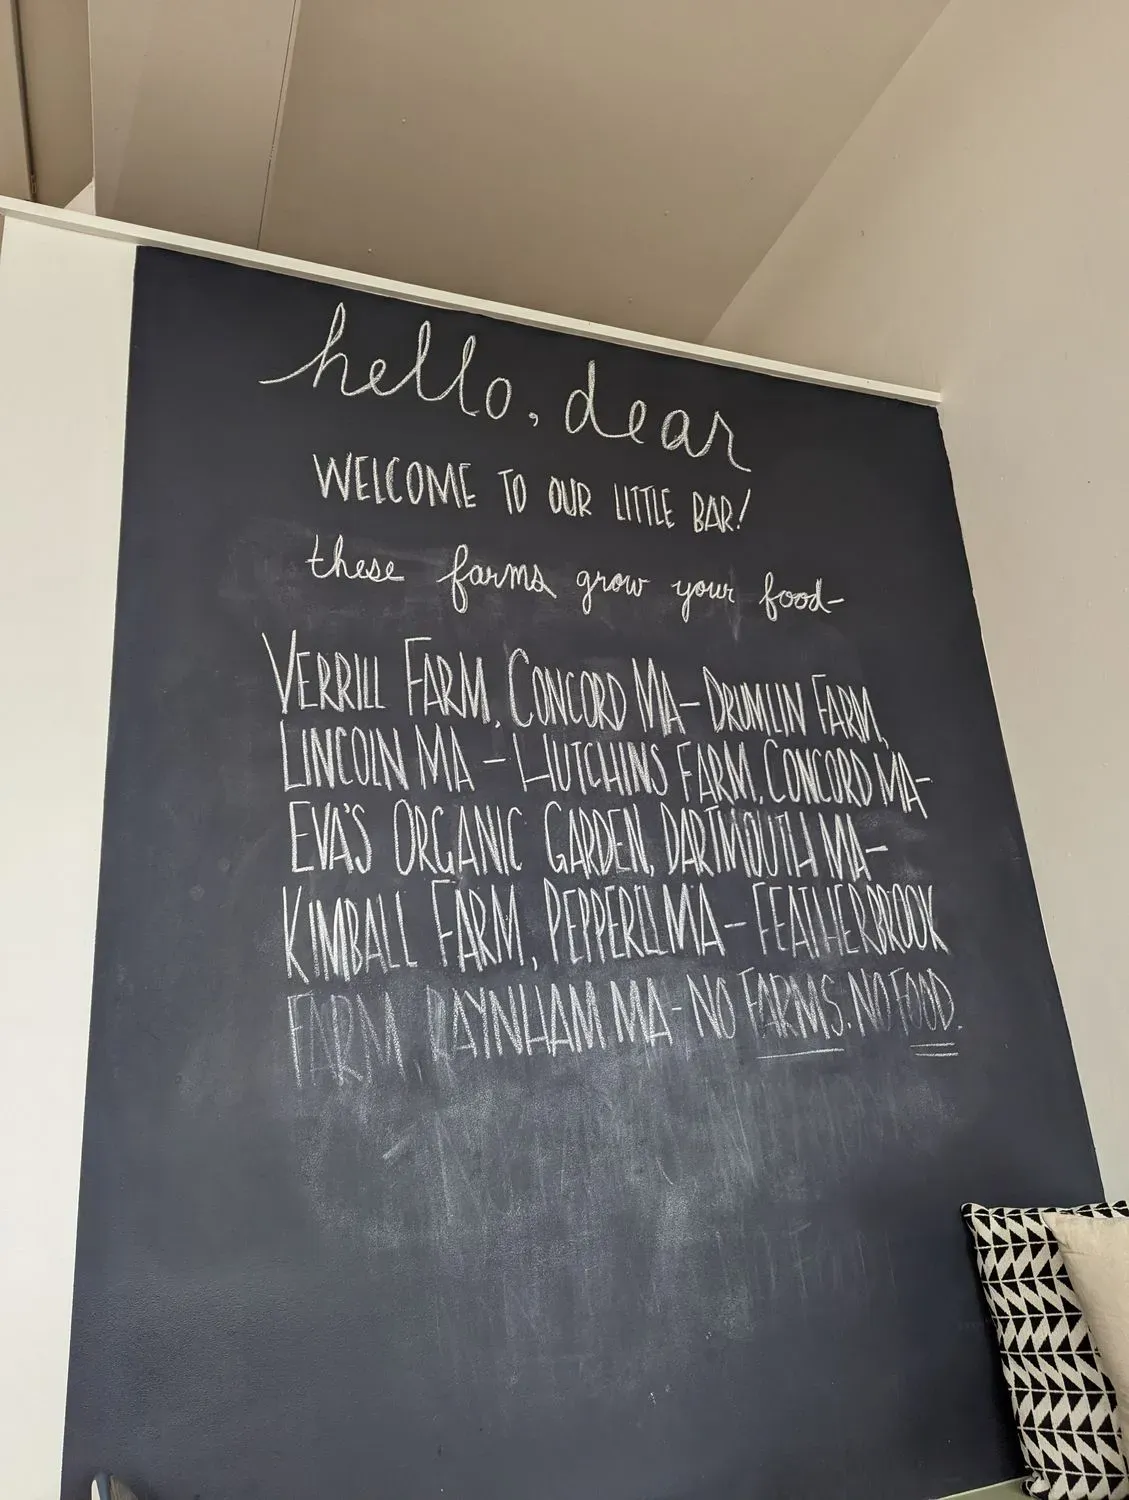 hello, dear
WELCOME TO OUR LITTLE BAR!
these farms grow your food-
VERRILL FARM, CONCORD MA- DRUMLIN FARM,
LINCOLN MA - HUTCHINS FARM, CONCORD MA-
EVA'S ORGANIC GARDEN, DARTMOUTH MA-
KIMBALL FARM, PEPPERELL MA- FEATHERBROOK
FARM RAYNHAM MA- NO FARMS. NO FOOD.